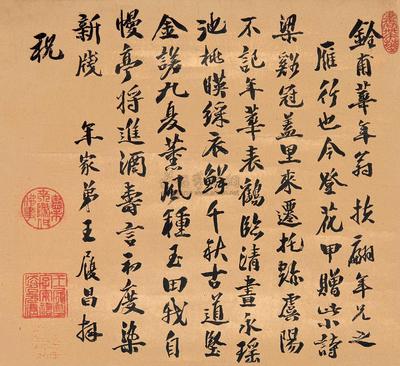 铨甫華年翁扶翮年兄之
雁行也今登花甲贈此小詩
梁谿冠盖里來遷托跡虞陽
不記年華表鶴臨清晝永瑶
池桃暎綵衣鮮千秋古道堅
金諾九夏薰風種玉田我自
慢亭将進酒壽言初度染
新牋 年家弟王屐昌拜
祝